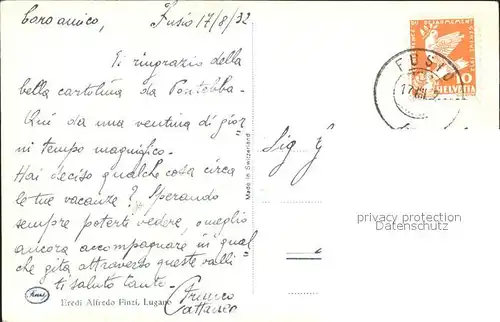 Caro amico, Fusio 17/8/32
Ti ringrazio della
bella cartolina da Pontebba.
Qui da una ventina di gior
ni tempo magnifico.
Hai deciso qualche cosa circa
le tue vacanze? Sperando
sempre poterti vedere, o meglio
ancora accompagnare in qual
che gita attraverso queste valli
ti saluto tanto.
Cattaneo
Eredi Alfredo Finzi, Lugano
Made in Switzerland
Sig
DESARMEMENT
10
HELVETIA
FUSIO
privacy protection
Datenschutz